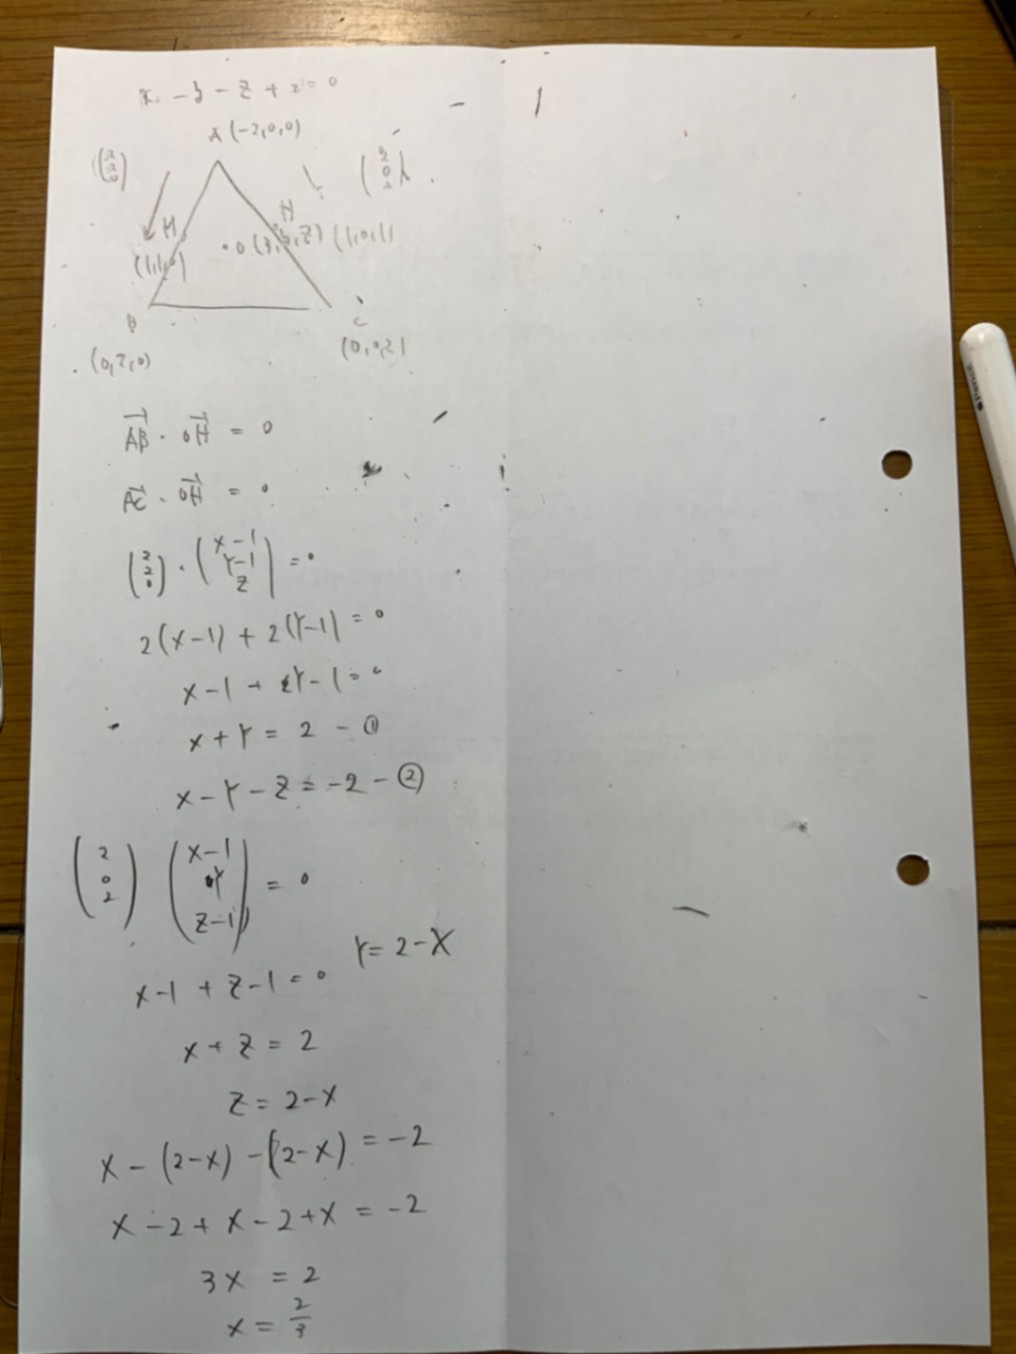 x - y - z + 2 = 0
A (-2,0,0)
(2 2 0)
(2 0 2)
H
H
(1,1,0)
O (x,y,z) (1,0,1)
B
C
(0,2,0)
(0,0,2)
AB · OH = 0
AC · OH = 0
(2 2 0) · (x-1 Y-1 z) = 0
2(x-1) + 2(Y-1) = 0
x-1 + Y-1 = 0
x + Y = 2 - ①
x - Y - z = -2 - ②
(2 0 2) (x-1 Y z-1) = 0
Y = 2-x
x-1 + z-1 = 0
x + z = 2
z = 2-x
x - (2-x) - (2-x) = -2
x - 2 + x - 2 + x = -2
3x = 2
x = 2/3
Pencil